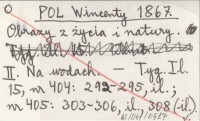 POL Wincenty 1867.
Obrazy z życia i natury.
II. Na wodach. — Tyg. Il.
15, nr 404: 292-295, il.;
nr 405: 303-306, il., 308 (il.).